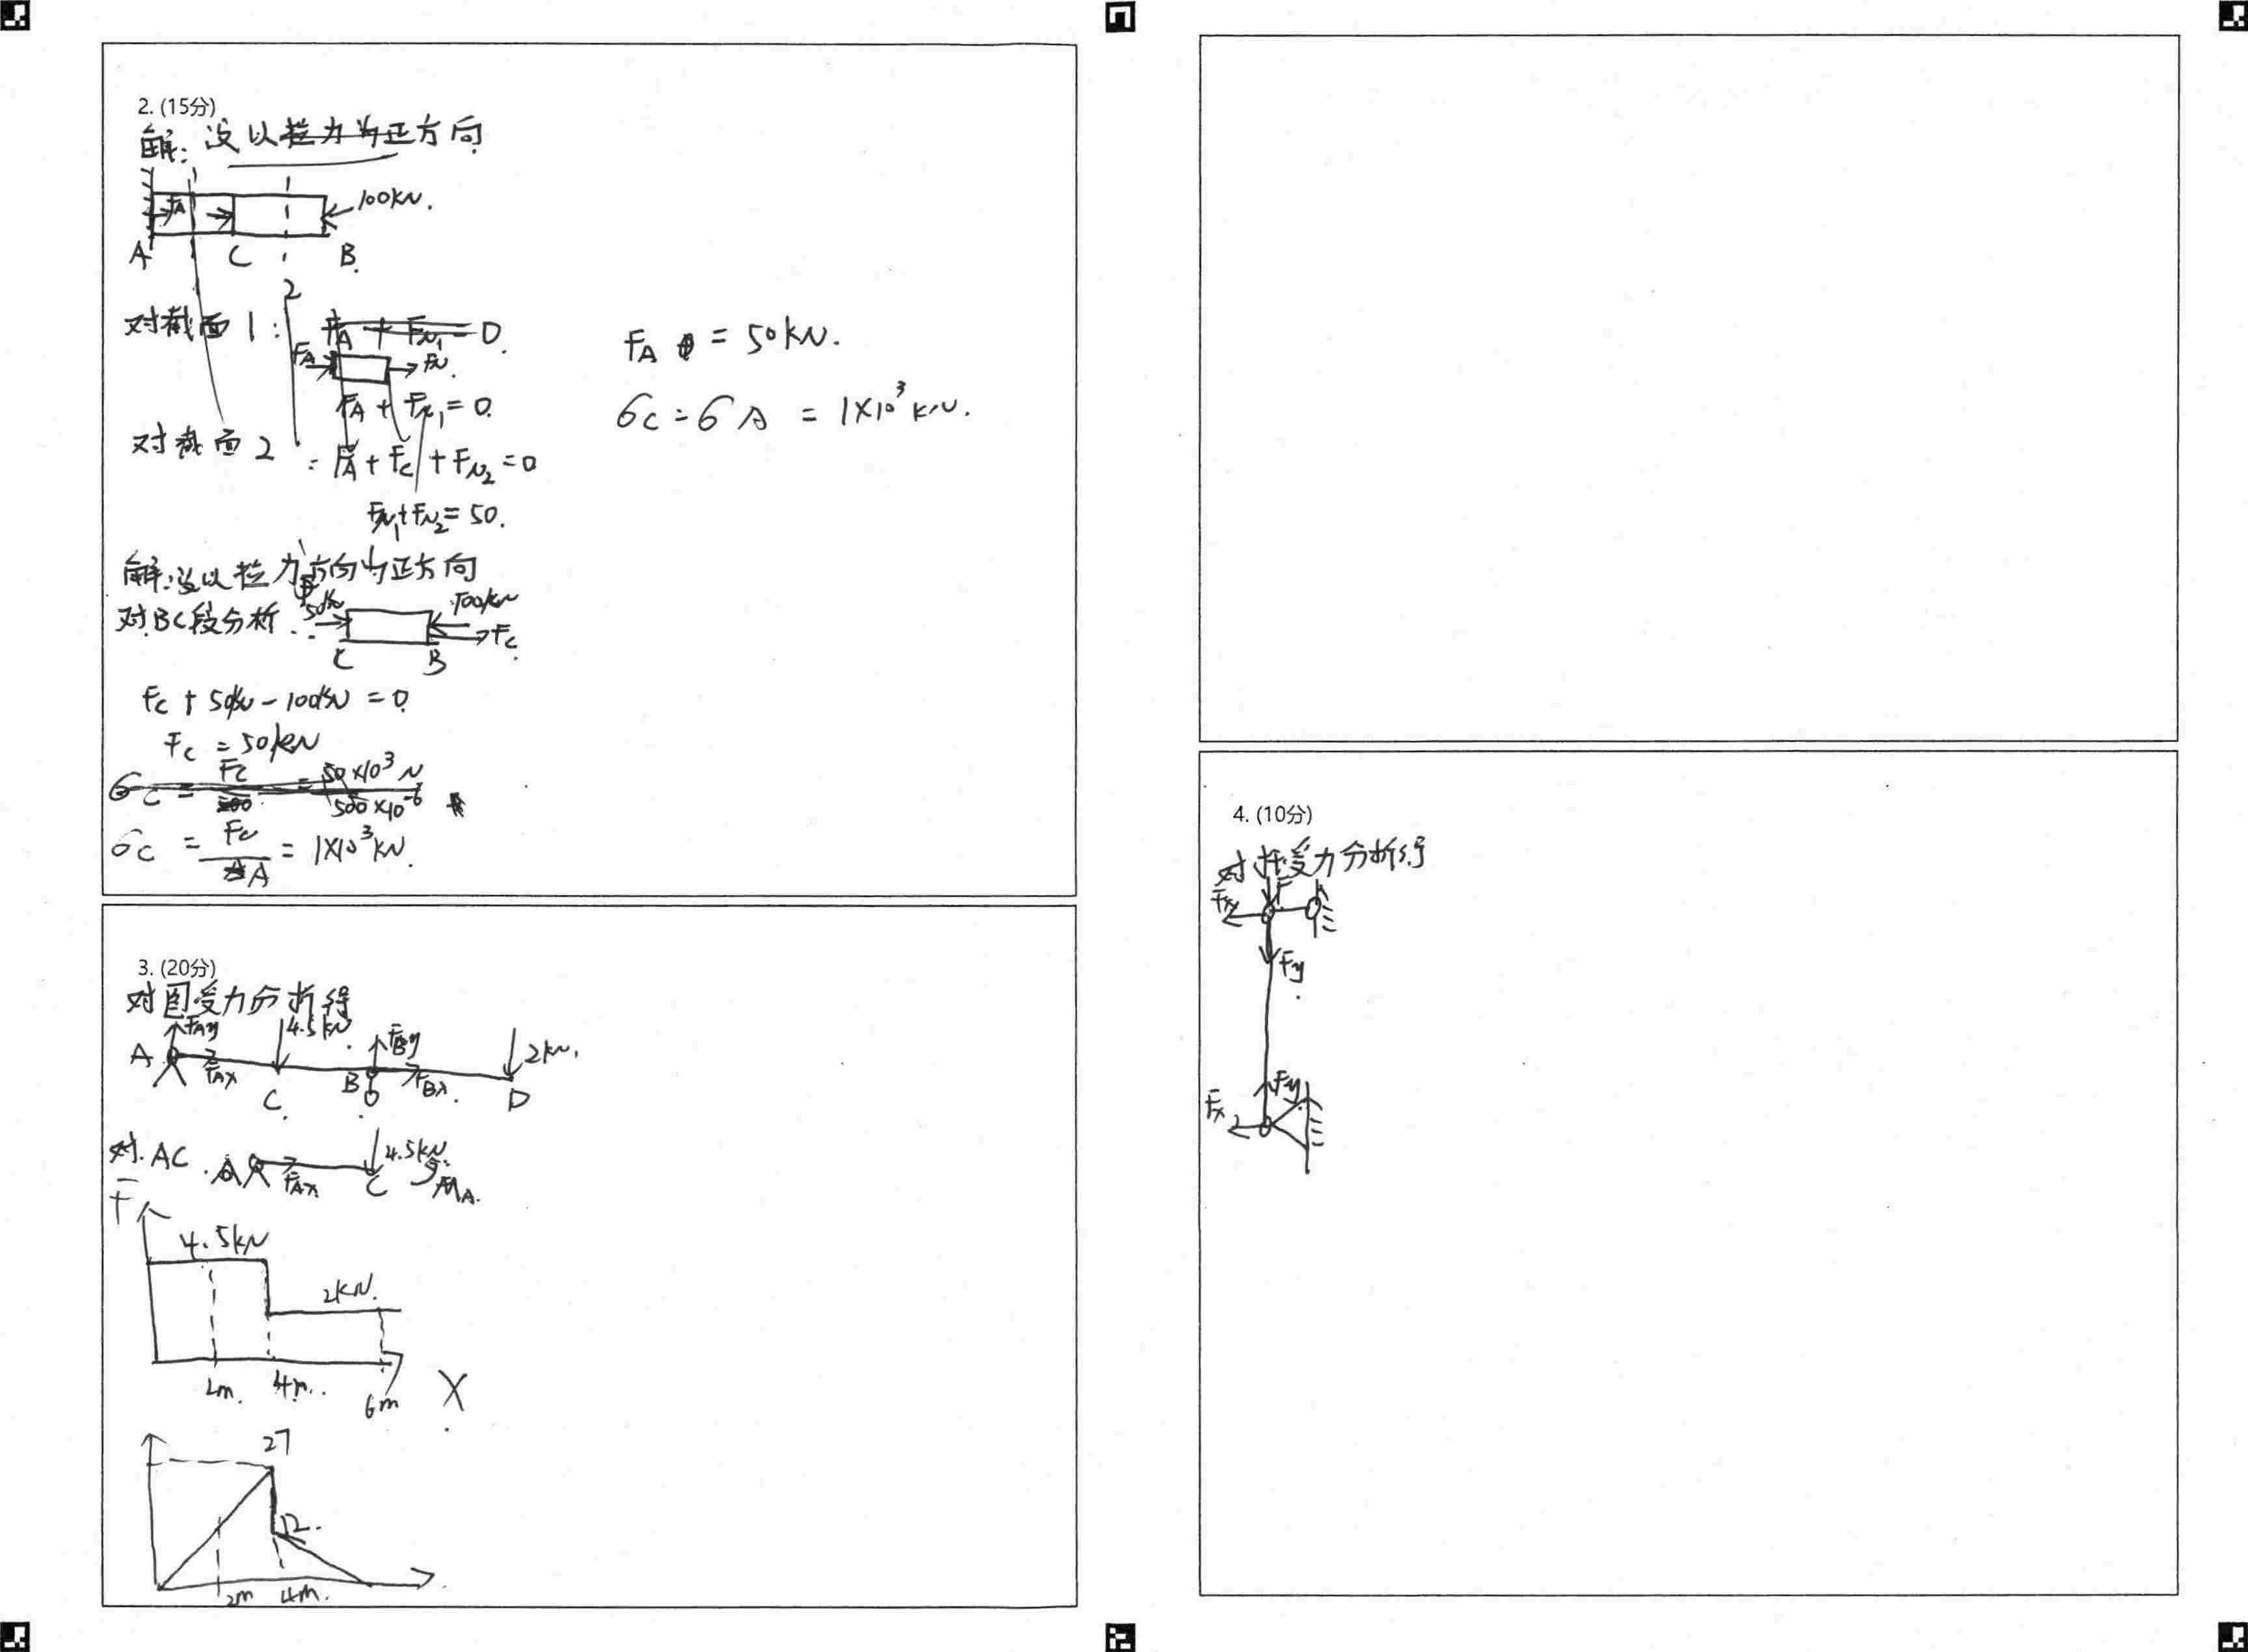 2. (15分)
解: 设以拉力为正方向
FA 100kN.
A C B.
2
对截面1: FA + FN1 = 0.
FA FN.
FA + FN1 = 0.
对截面2 : FA + FC + FN2 = 0
FN1 + FN2 = 50.
解:设以拉力方向为正方向
对BC段分析: 50kN 100kN
FC.
C B
FC + 50kN - 100kN = 0.
FC = 50kN
σC = FC/500 = 50×10³N/500×10⁻⁶
σC = FC/A = 1×10³kN.
FA = 50kN.
σC = σA = 1×10³kN.
3. (20分)
对图受力分析得
FAy 4.5kN. FBy 2kN.
A FAx C. B FBx. D
对.AC. A FAx 4.5kN C MA.
F
4.5kN
2kN.
2m. 4m. 6m X
27
12.
2m 4m.
4. (10分)
对杆受力分析得
Fx F
Fy
Fx Fy